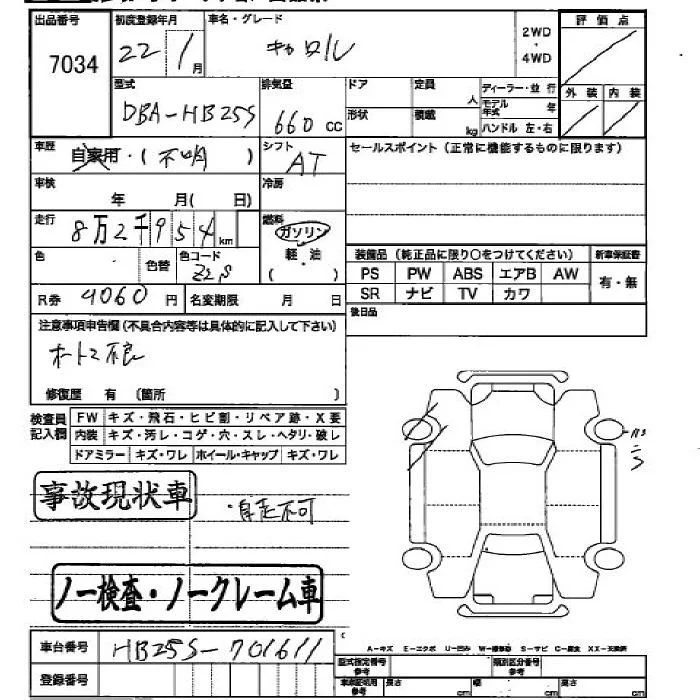 出品番号 7034
初度登録年月 22 1月
車名・グレード キャロル
2WD・4WD
評価点
型式 DBA-HB25S
排気量 660cc
ドア
形状
定員 人
積載 kg
ディーラー・並行
モデル年式 年
ハンドル 左・右
外装 内装
車歴 自家用・(不明)
シフト AT
セールスポイント(正常に機能するものに限ります)
車検 年 月(日)
冷房
走行 8万2千954km
燃料 ガソリン 軽・油 ( )
色 色替 色コード Z2S
装備品(純正品に限り○をつけてください) 新車保証書
PS PW ABS エアB AW 有・無
SR ナビ TV カワ
R券 9060円 名変期限 月 日
後日品
注意事項申告欄(不具合内容等は具体的に記入して下さい)
オートマ不良
修復歴 有 (箇所 )
検査員記入欄
FW キズ・飛石・ヒビ割・リペア跡・X要
内装 キズ・汚レ・コゲ・穴・スレ・ヘタリ・破レ
ドアミラー キズ・ワレ ホイール・キャップ キズ・ワレ
事故現状車
・自走不可
ノー検査・ノークレーム車
車台番号 HB25S-701611
A-キズ E-エクボ U-凹み W-補修跡 S-サビ C-腐食 XX-交換済
登録番号
型式指定番号 類別区分番号
長さ cm 幅 cm 高さ cm